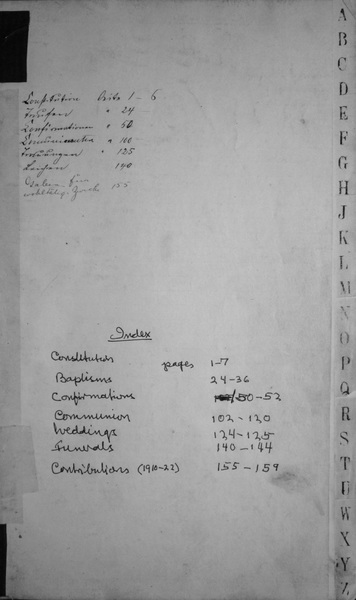 Constitution Seite 1-6
Taufen " 24
Confirmationen " 50
Communicanten " 100
Trauungen " 125
Leichen 140
Gaben für
wohltätig. Zweck 155
Index
Constitution pages 1-7
Baptisms 24-36
Confirmations 50-52
Communion 102-120
Weddings 124-125
Funerals 140-144
Contributions (1910-22) 155-159
A
B
C
D
E
F
G
H
J
K
L
M
N
O
P
Q
R
S
T
U
W
X
Y
Z